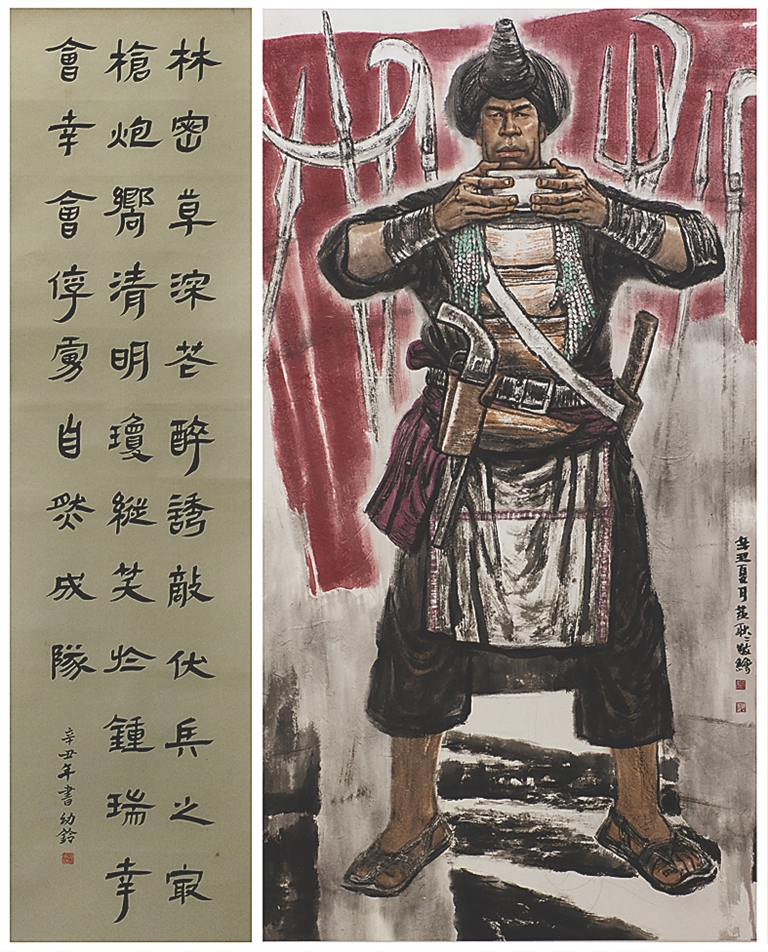 林密草深芒醉誘敵伏兵之最
槍炮嚮清明瓊縱笑於鍾瑞幸
會幸會俘虜自然成隊
辛丑年書幼鈴
辛丑夏月敬繪